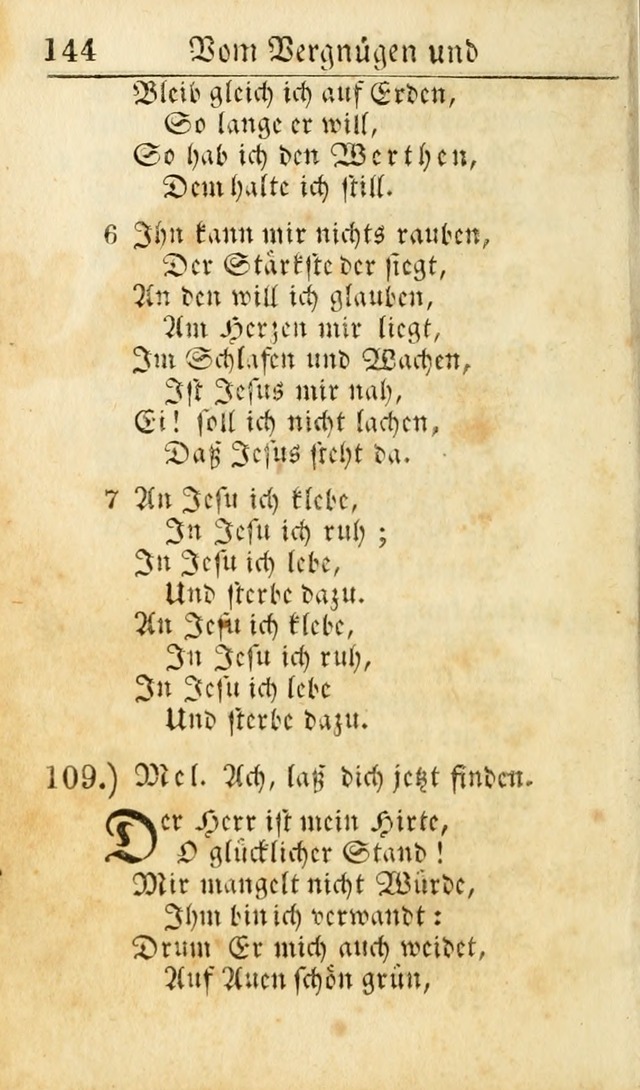 144 Vom Vergnügen und
Bleib gleich ich auf Erden,
So lange er will,
So hab ich den Werthen,
Dem halte ich still.
6 Ihn kann mir nichts rauben,
Der Stärkste der siegt,
An den will ich glauben,
Am Herzen mir liegt,
Im Schlafen und Wachen,
Ist Jesus mir nah,
Ei! soll ich nicht lachen,
Daß Jesus steht da.
7 An Jesu ich klebe,
In Jesu ich ruh;
In Jesu ich lebe,
Und sterbe dazu.
An Jesu ich klebe,
In Jesu ich ruh,
In Jesu ich lebe
Und sterbe dazu.
109.) Mel. Ach, laß dich jetzt finden.
Der Herr ist mein Hirte,
O glücklicher Stand!
Mir mangelt nicht Würde,
Ihm bin ich verwandt:
Drum Er mich auch weidet,
Auf Auen schön grün,